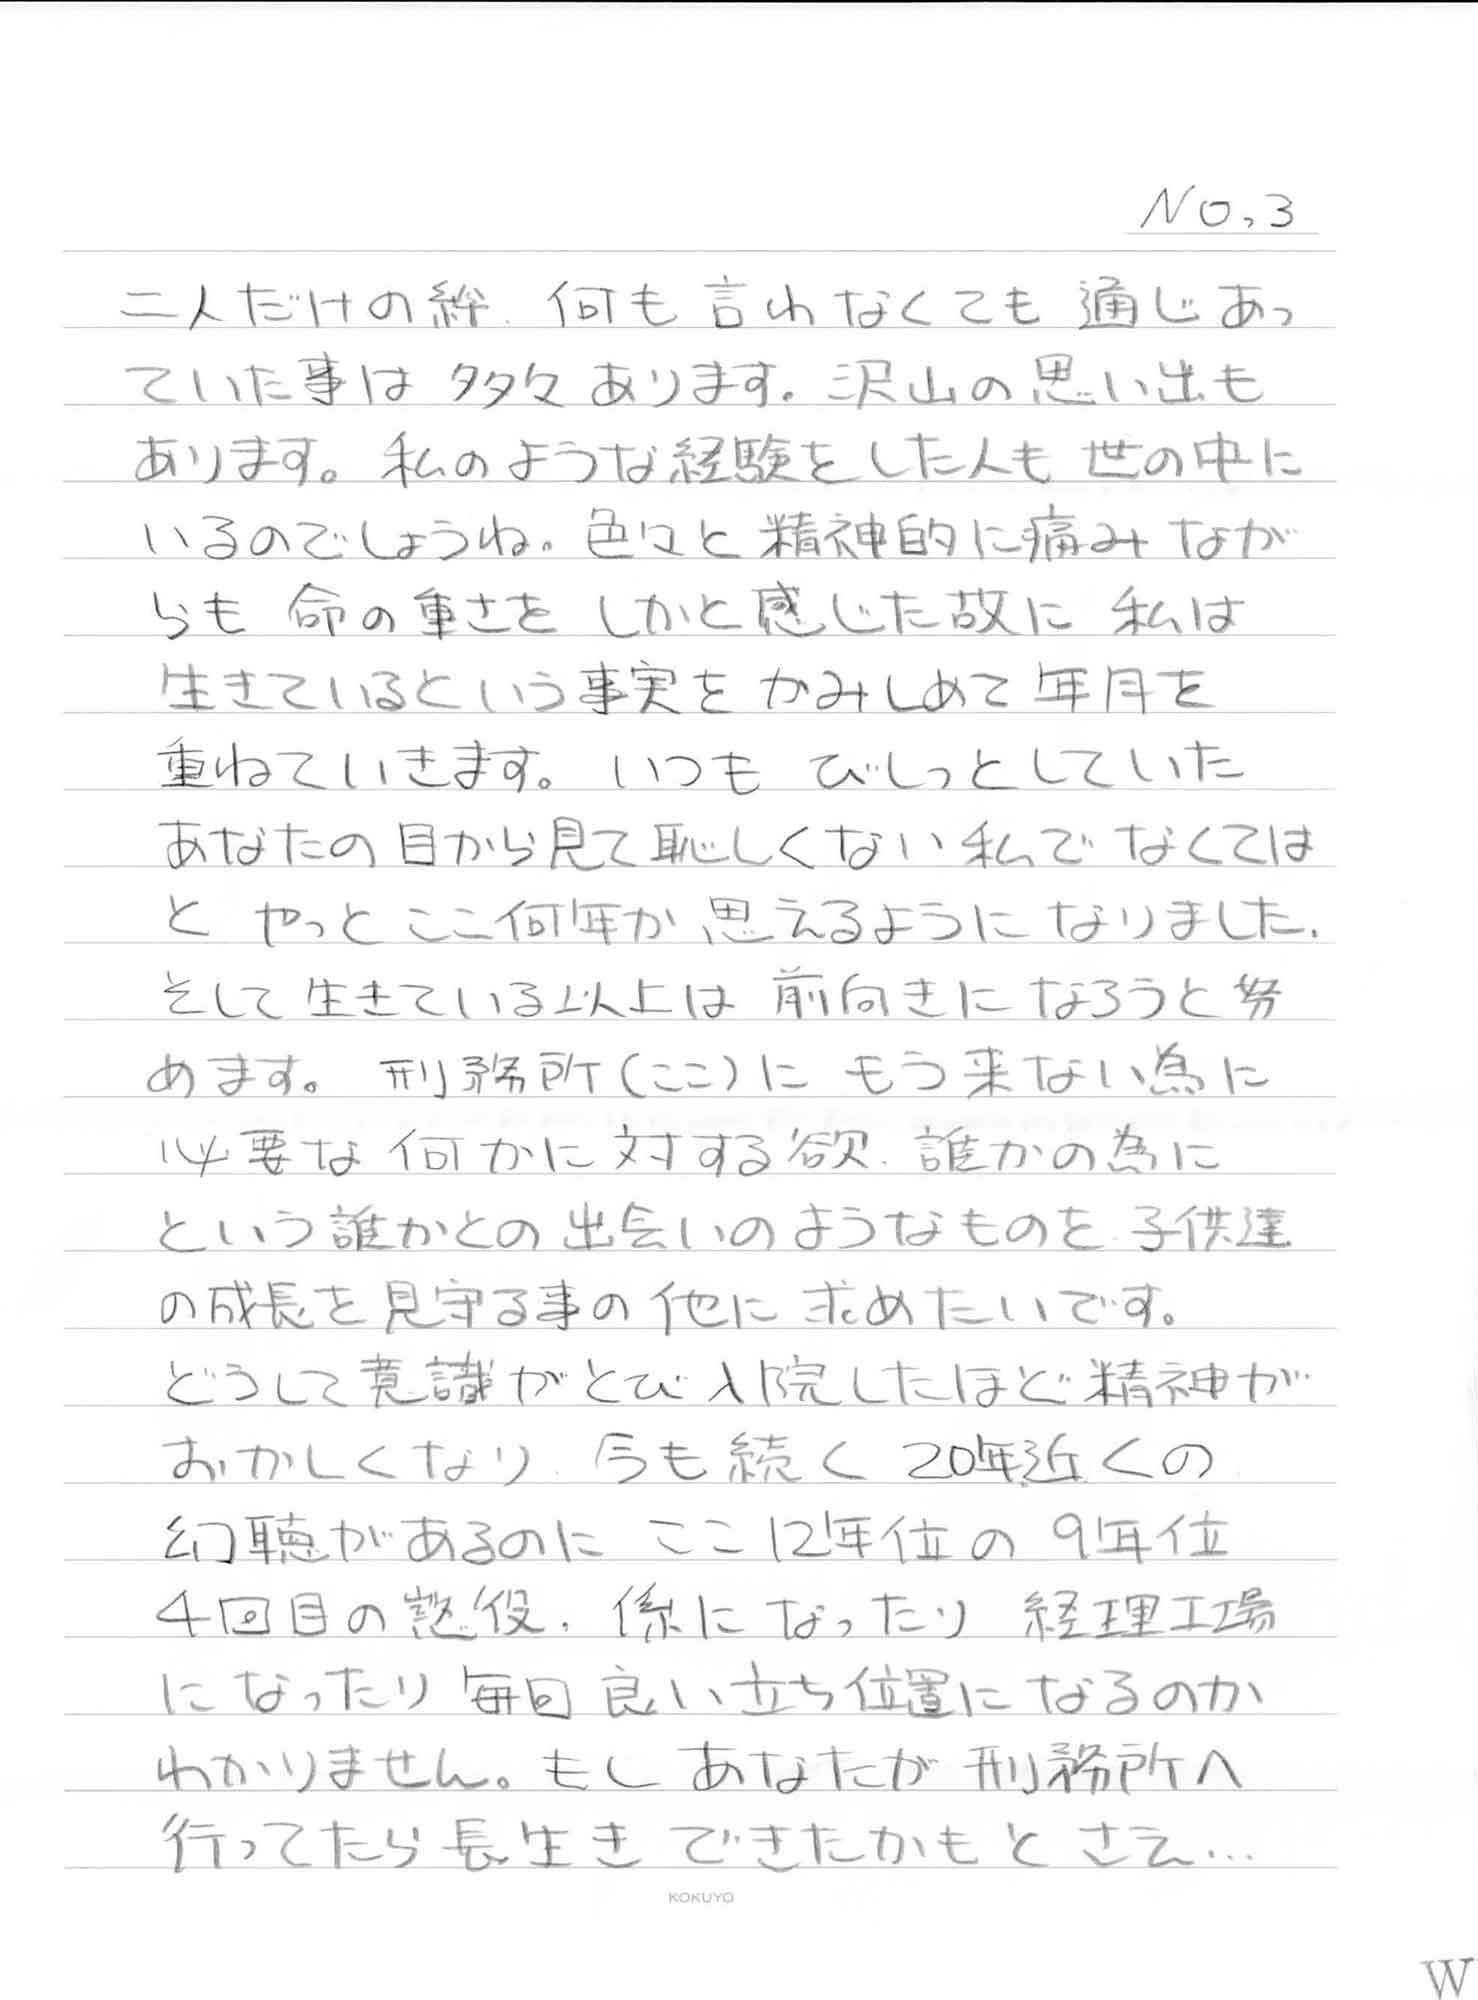 No,3
二人だけの絆、何も言わなくても通じあっ
ていた事は多々あります。沢山の思い出も
あります。私のような経験をした人も世の中に
いるのでしょうね。色々と精神的に痛みなが
らも命の重さをしかと感じた故に私は
生きているという事実をかみしめて年月を
重ねていきます。いつもびしっとしていた
あなたの目から見て恥しくない私でなくては
とやっとここ何年か思えるようになりました。
そして生きている以上は前向きになろうと努
めます。刑務所(ここ)にもう来ない為に
必要な何かに対する欲、誰かの為に
という誰かとの出会いのようなものを、子供達
の成長を見守る事の他に求めたいです。
どうして意識がとび入院したほど精神が
おかしくなり、今も続く20年近くの
幻聴があるのにここ12年位の9年位
4回目の懲役、係になったり経理工場
になったり毎回良い立ち位置になるのか
わかりません。もしあなたが刑務所へ
行ってたら長生きできたかもとさえ…
KOKUYO
W